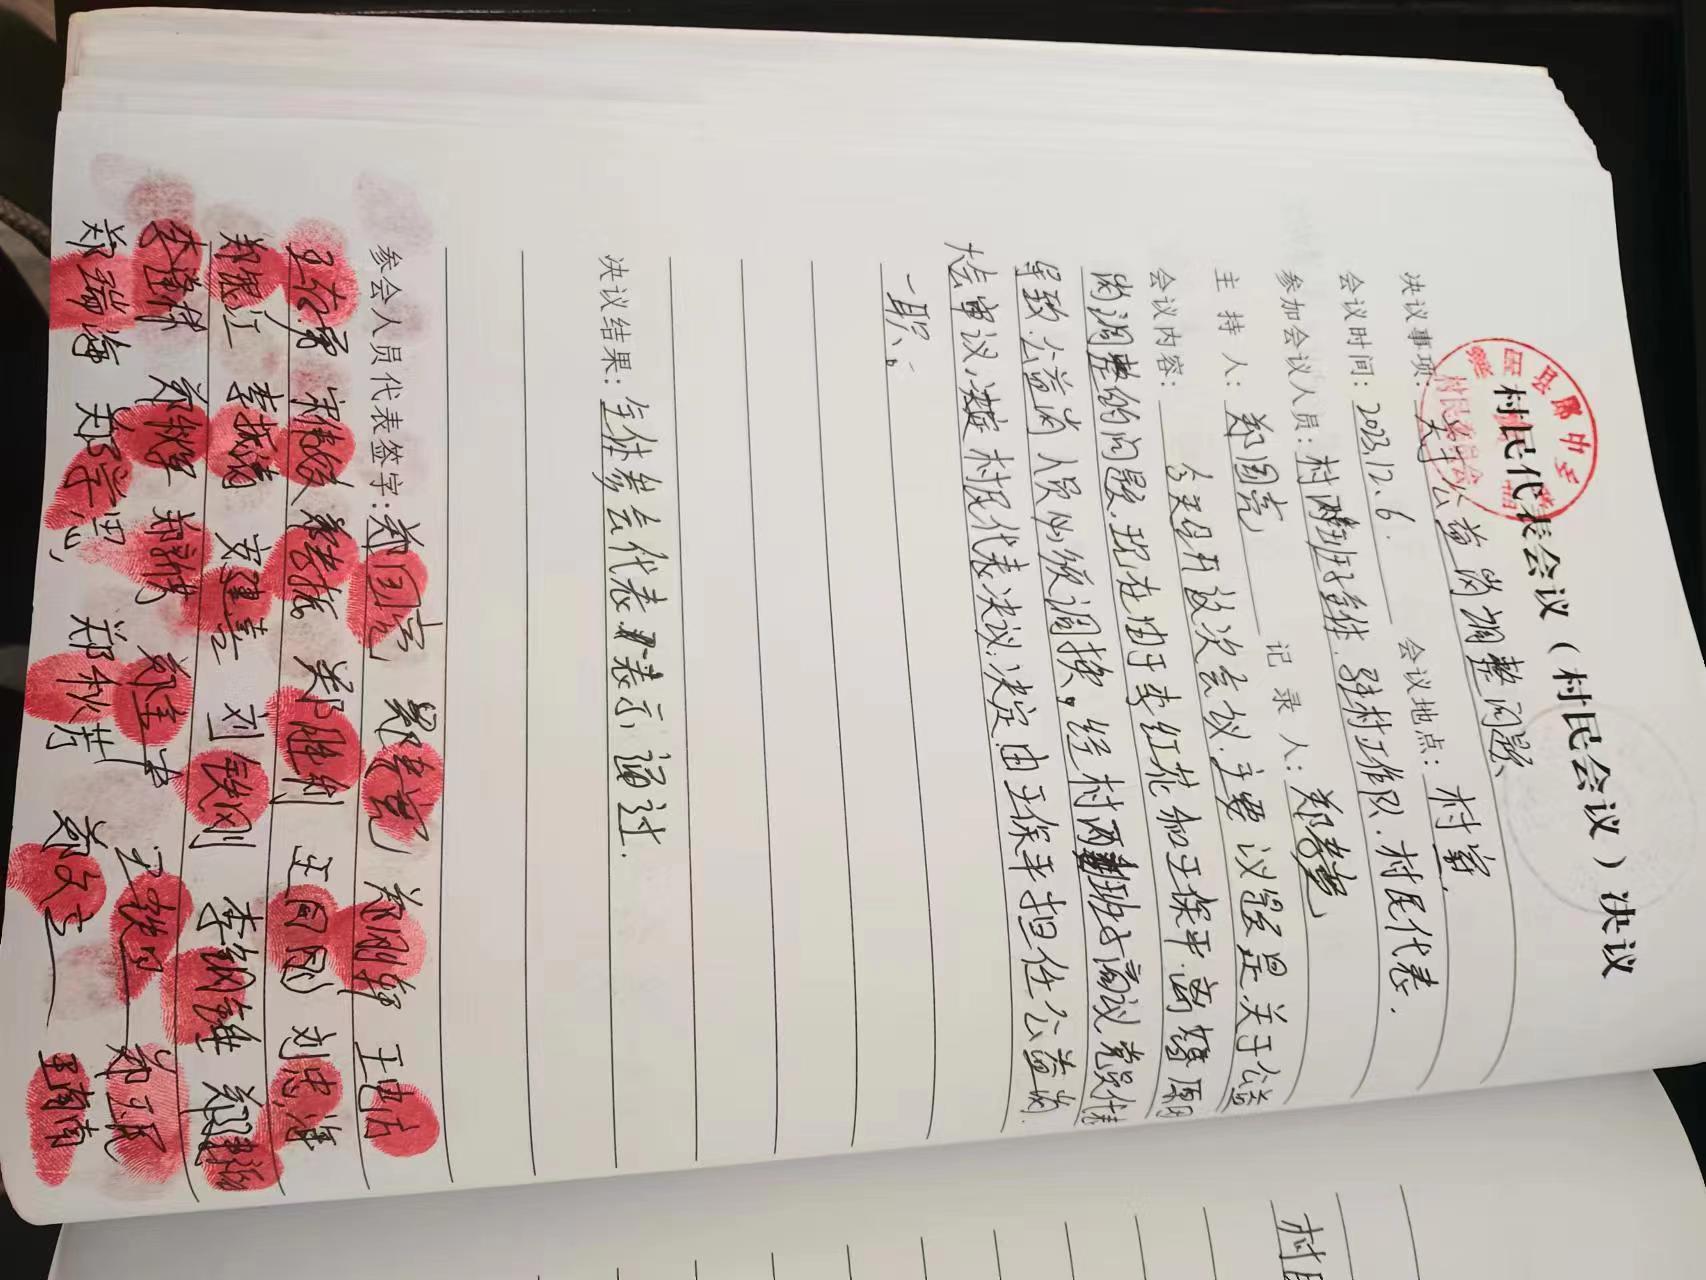 村民代表会议（村民会议）决议
村民委员会
决议事项：关于公益岗调整问题
会议时间：2023.12.6. 会议地点：村室.
参加会议人员：村两委班子全体.驻村工作队.村民代表.
主持人：郑国亮 记录人：郑孝宽
会议内容：今天召开这次会议.主要议题是关于公益
岗调整的问题.现在由于李红花和王保平.离婚原因
导致.公益岗人员必须调换。经村两委班子商议党员代表
大会审议.决定村民代表决议.决定由王保平担任公益岗.
一职。
决议结果：全体参会代表表示通过.
参会人员代表签字：郑国亮 郑孝宽 郑刚轩 王电方
王存勇 宋伟姣 郑孝振 郑胜利 王同刚 刘忠海
郑银江 李振清 安建喜 刘铁刚 李钢锤 郑建
李逢林 郑秋军 郑新共 郑金中 王铁 郑玉民
郑瑞海 郑学思 郑秋芳 郑文立 王南南
村民